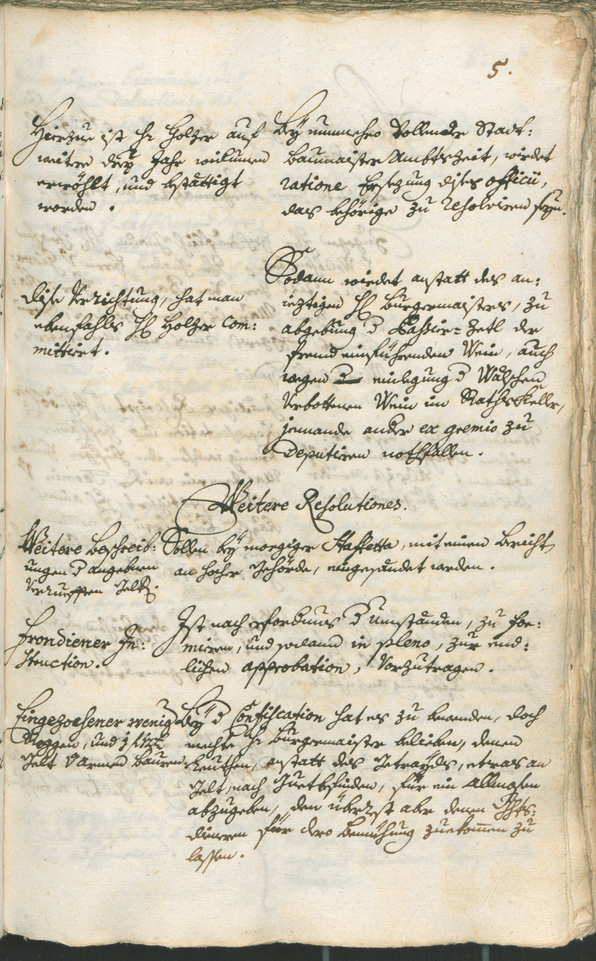 5.
Hierzue ist H: Holzer auf
weitere drey Jahr widerumen
erwöhlt, und bestättigt
worden.
Bey nunmehro Vollendter Statt:
baumaister Ambtszeit, wirdet
ratione Ersezung dises officii,
das behörige zu resolviren seyn.
Dise Verichtung, hat man
ebenfahls H: Holzer com:
mittiret.
Sodann wirdet anstatt des an:
ieztigen H: Burgermaisters, zu
abgebung d Passier-Zetl der
frembd einführenden Wein, auch
wegen einlegung d Wälschen
Verbottenen Wein im Rathskeller,
jemande ander ex gremio zu
Deputiren nothfallen.
Weitere Resolutiones.
Weitere beschreib:
ungen d angebnen
Verrueffen Geltr.
Sollen bey morgiger Staffetta, mit einen bericht
an hocher Behörde, eingesendet werden.
Frondiener In:
struction.
Ist nach erfordnus d umständen, zu for:
miren, und sodann in pleno, zur end:
lichen approbation, Vorzutragen.
Eingezochener wenig
Roggen, und
Gelt Varmen bauren
Bey d Confiscation hat es zu bewenden, doch
mechte H: burgermaister belieben, denen
Leuthen, anstatt des Getrayds, etwas an
Gelt, nach Guetbefinden, für ein Allmosen
abzugeben, den überrest aber denen
dienern für dero bemühung zuekommen zu
lassen.